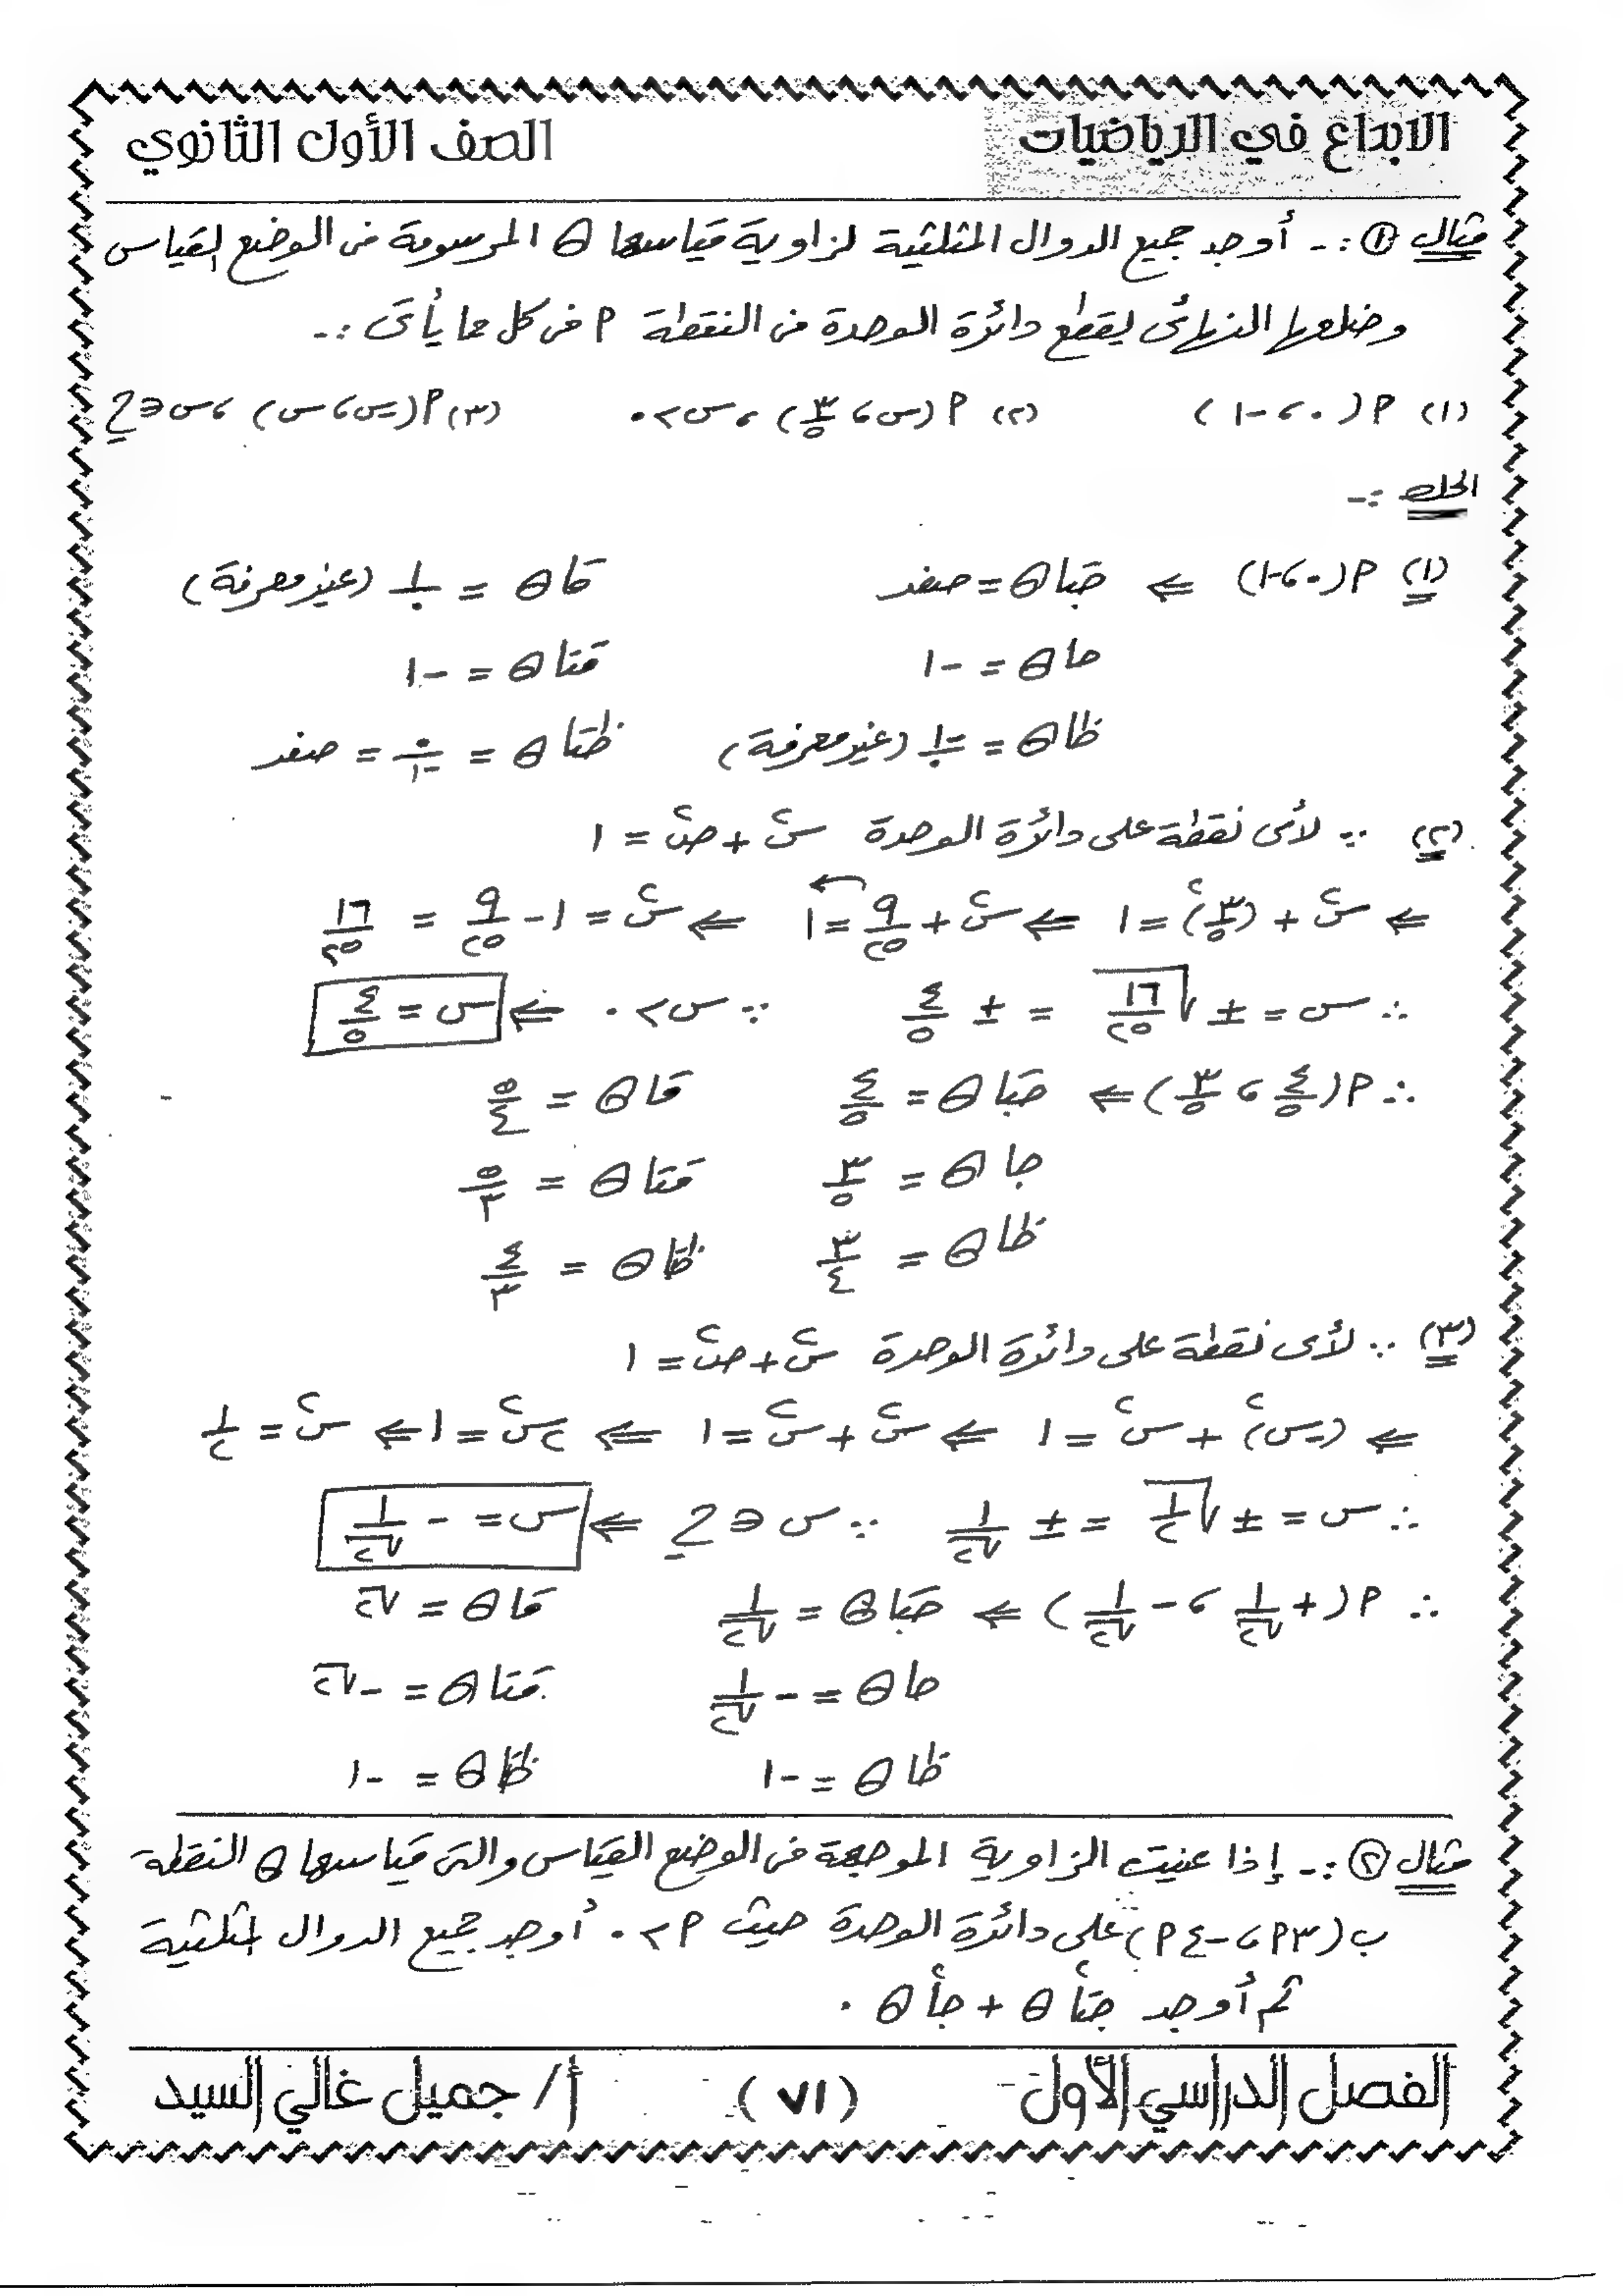 الابداع في الرياضيات
الصف الأول الثانوي
مثال ① :- أوجد جميع الدوال المثلثية لزاوية قياسها θ المرسومة فى الوضع القياسى
وضلعها النهائى يقطع دائرة الوحدة فى النقطة P فى كل مما يأتى :-
(١) P(٠ ، -١) (٢) P(س ، ٣/٥) ، س > ٠ (٣) P(-س ، س) ، س ∈ ح⁻
الحل :-
(١) P(٠ ، -١) ⇐ جتا θ = صفر قا θ = ١/٠ (غير معرفة)
جا θ = -١ قتا θ = -١
ظا θ = -١/٠ (غير معرفة) ظتا θ = ٠/-١ = صفر
(٢) ∵ لأى نقطة على دائرة الوحدة س² + ص² = ١
⇐ س² + (٣/٥)² = ١ ⇐ س² + ٩/٢٥ = ١ ⇐ س² = ١ - ٩/٢٥ = ١٦/٢٥
∴ س = ± √(١٦/٢٥) = ± ٤/٥ ∵ س > ٠ ⇐ س = ٤/٥
∴ P(٤/٥ ، ٣/٥) ⇐ جتا θ = ٤/٥ قا θ = ٥/٤
جا θ = ٣/٥ قتا θ = ٥/٣
ظا θ = ٣/٤ ظتا θ = ٤/٣
(٣) ∵ لأى نقطة على دائرة الوحدة س² + ص² = ١
⇐ (-س)² + س² = ١ ⇐ س² + س² = ١ ⇐ ٢س² = ١ ⇐ س² = ١/٢
∴ س = ± √(١/٢) = ± ١/√٢ ∵ س ∈ ح⁻ ⇐ س = - ١/√٢
∴ P(+ ١/√٢ ، - ١/√٢) ⇐ جتا θ = ١/√٢ قا θ = √٢
جا θ = - ١/√٢ قتا θ = -√٢
ظا θ = -١ ظتا θ = -١
مثال ② :- إذا عينت الزاوية الموجهة فى الوضع القياسى والتى قياسها θ النقطة
ب (٣P ، -٤P) على دائرة الوحدة حيث P > ٠ أوجد جميع الدوال المثلثية
ثم أوجد جتا² θ + جا² θ .
الفصل الدراسي الأول
(٧١)
أ/ جميل غالي السيد